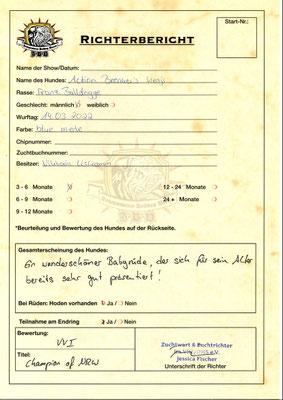 Start-Nr.:
RICHTERBERICHT
Name der Show/Datum:
Name des Hundes: Action
Rasse: Franz. Bulldogge
Geschlecht: männlich weiblich
Wurftag: 14.03.2022
Farbe: blue merle
Chipnummer:
Zuchtbuchnummer:
Besitzer:
3 - 6 Monate
12 - 24 Monate
6 - 9 Monate
24 + Monate
9 - 12 Monate
*Beurteilung und Bewertung des Hundes auf der Rückseite.
Gesamterscheinung des Hundes:
Ein wunderschöner Babyrüde, der sich für sein Alter
bereits sehr gut präsentiert!
Bei Rüden: Hoden vorhanden Ja / Nein
Teilnahme am Endring Ja / Nein
Bewertung:
VV1
Titel:
Champion of NRW
Zuchtwart & Zuchtrichter
Jessica Fischer
Unterschrift der Richter